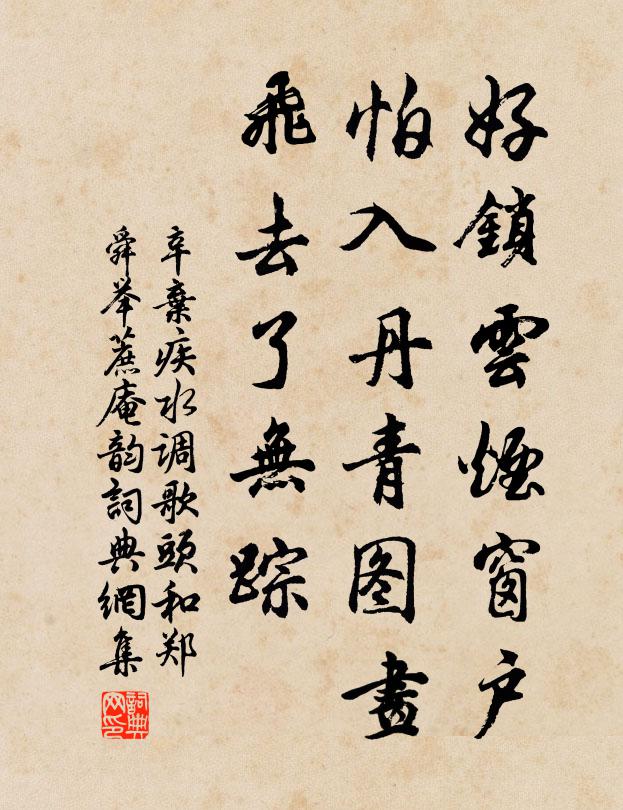 好鎖雲煙窗户
怕入丹青图畫
飛去了無踪
辛棄疾水调歌頭和郑
舜举蔗庵韵詞典網集
詞典网印